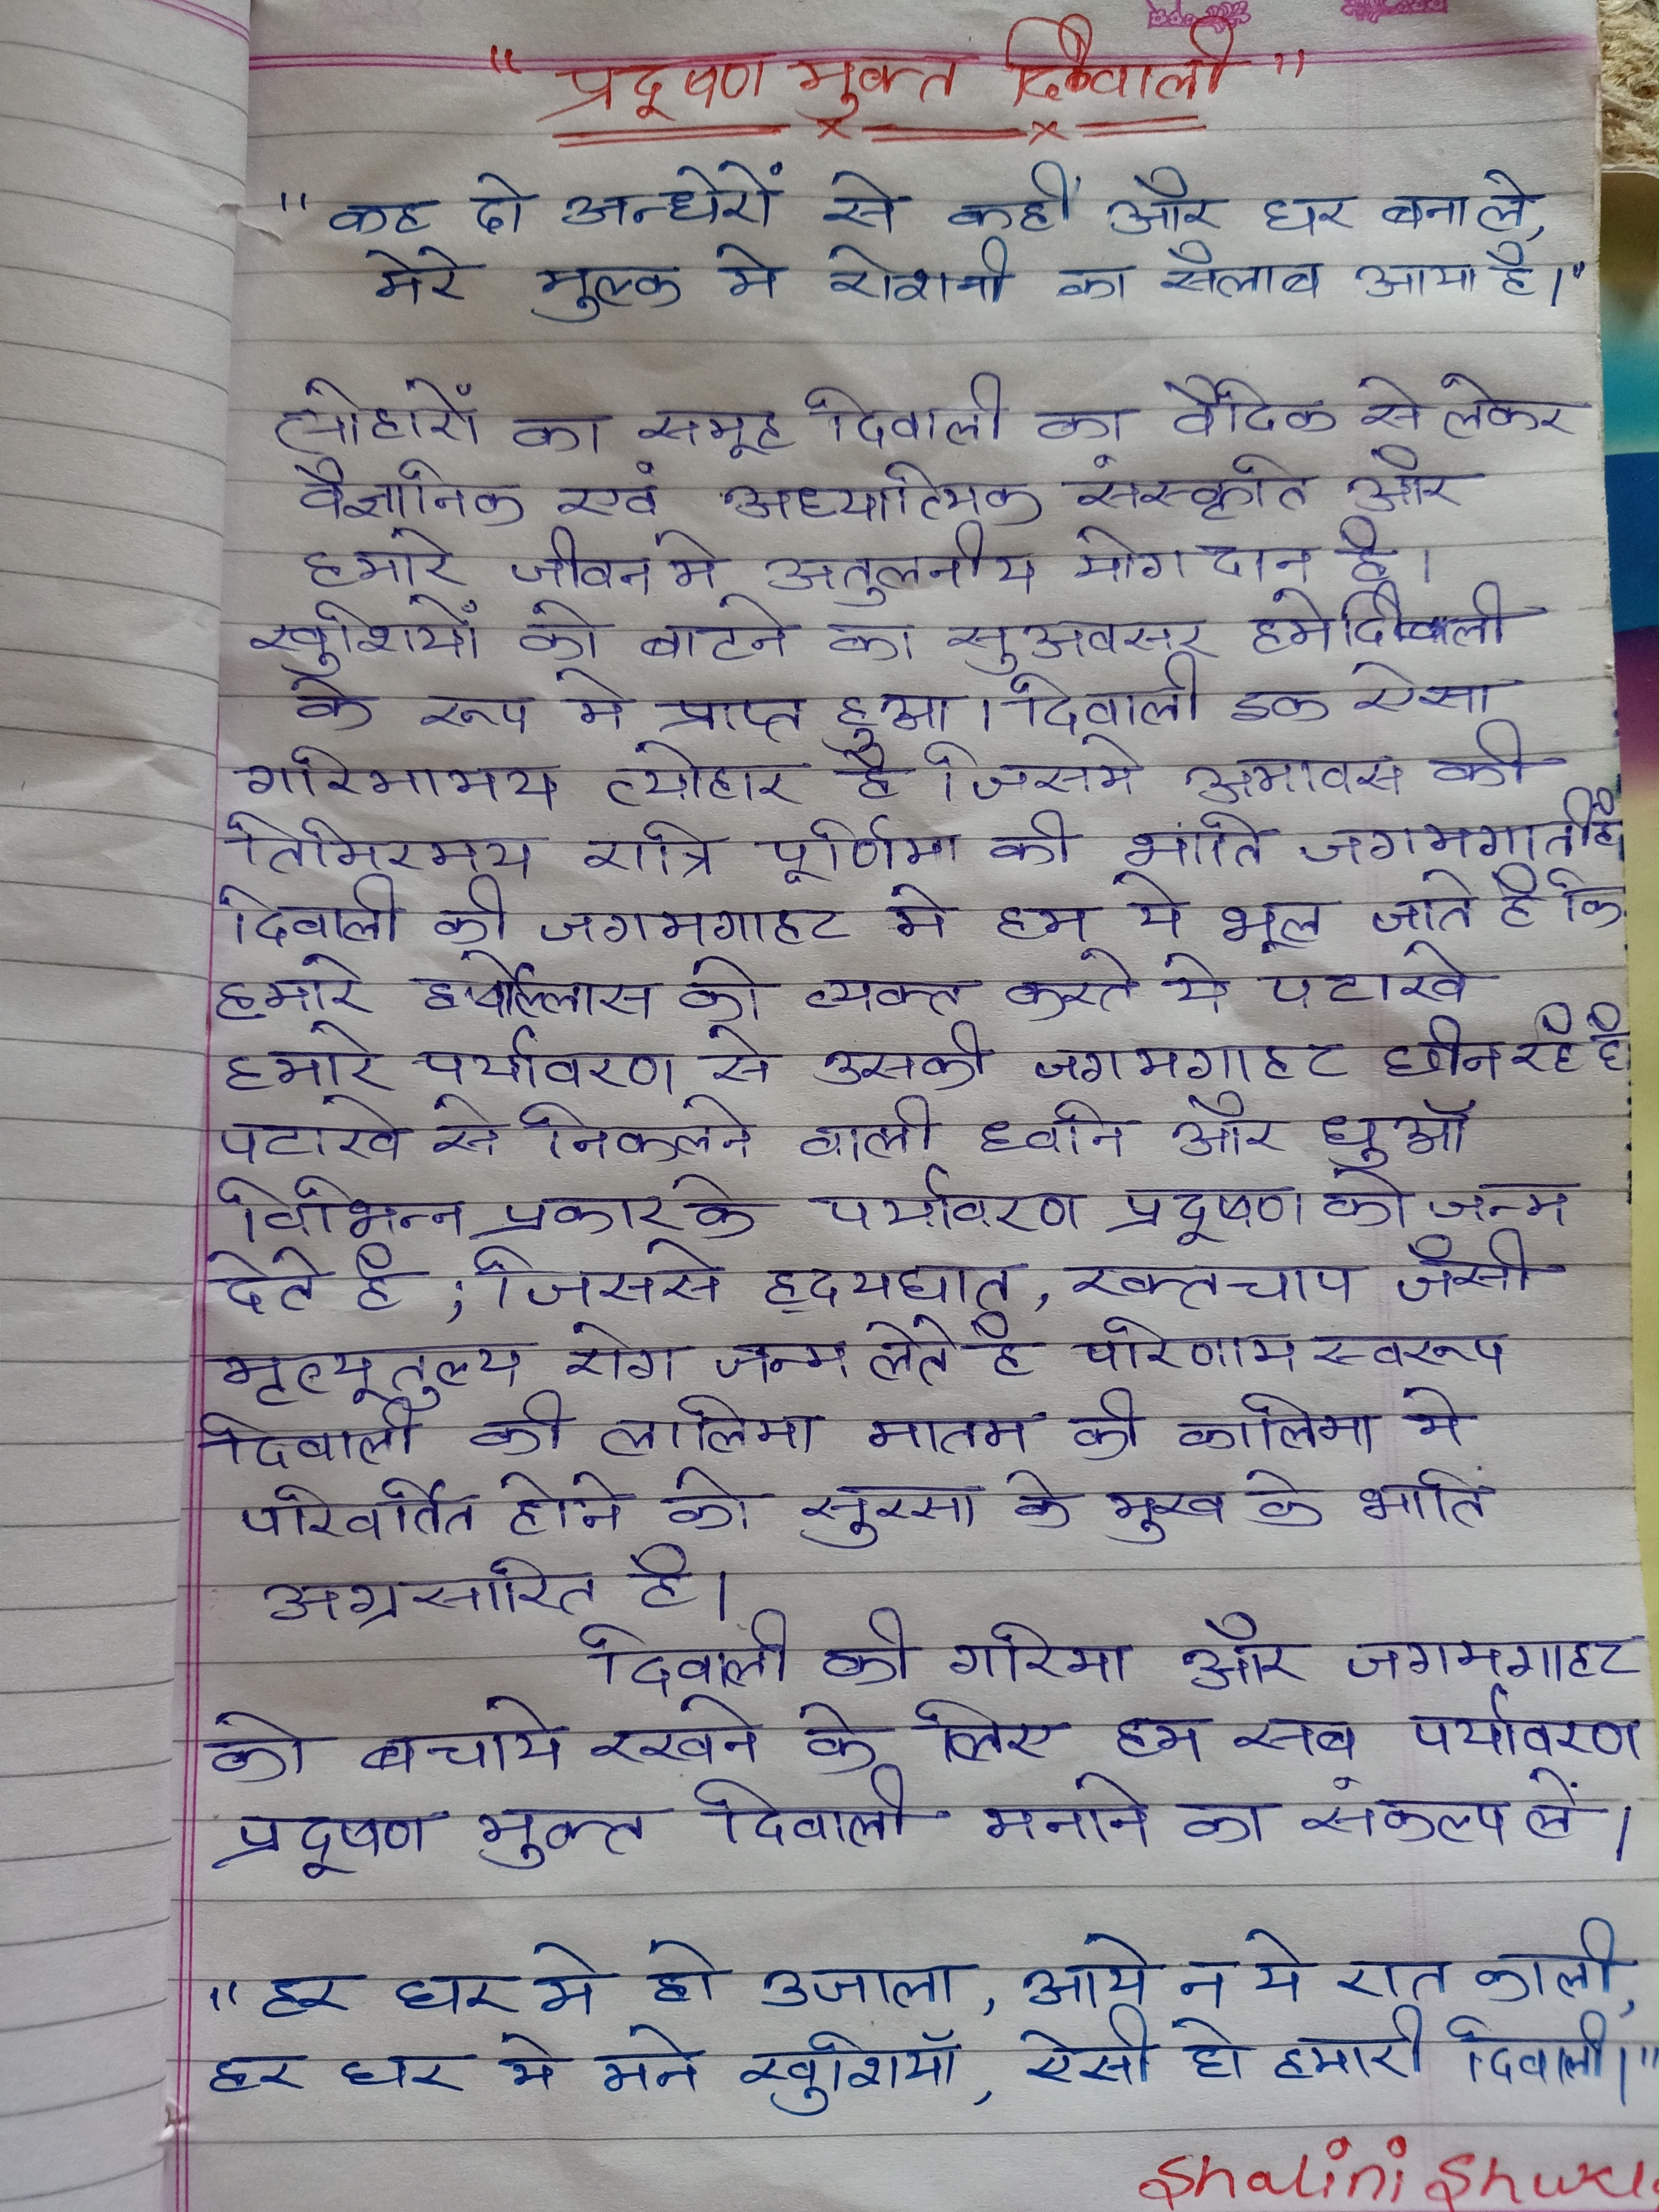 "प्रदूषण मुक्त दिवाली"
"कह दो अन्धेरों से कहीं और घर बना ले,
मेरे मुल्क मे रोशनी का सैलाब आया है।"
त्योहारों का समूह दिवाली का वैदिक से लेकर
वैज्ञानिक एवं अध्यात्मिक संस्कृति और
हमारे जीवन मे अतुलनीय योगदान है।
खुशियों को बाटने का सुअवसर हमे दिवाली
के रूप मे प्राप्त हुआ। दिवाली इक ऐसा
गरिमामय त्योहार है जिसमे अमावस की
तिमिरमय रात्रि पूर्णिमा की भांति जगमगाती है
दिवाली की जगमगाहट मे हम ये भूल जाते है कि
हमारे हर्षोल्लास को व्यक्त करते ये पटाखे
हमारे पर्यावरण से उसकी जगमगाहट छीन रहे है
पटाखे से निकलने वाली ध्वनि और धुऑ
विभिन्न प्रकार के पर्यावरण प्रदूषण को जन्म
देते है ; जिससे हृदयघात, रक्तचाप जैसी
मृत्यूतुल्य रोग जन्म लेते है परिणाम स्वरूप
दिवाली की लालिमा मातम की कालिमा मे
परिवर्तित होने को सुरसा के मुख के भाति
अग्रसारित है।
दिवाली की गरिमा और जगमगाहट
को बचाये रखने के लिए हम सब पर्यावरण
प्रदूषण मुक्त दिवाली मनाने का संकल्प लें।
"हर घर मे हो उजाला, आये न ये रात काली,
हर घर मे मने खुशियॉ, ऐसी हो हमारी दिवाली।"
Shalini Shukla